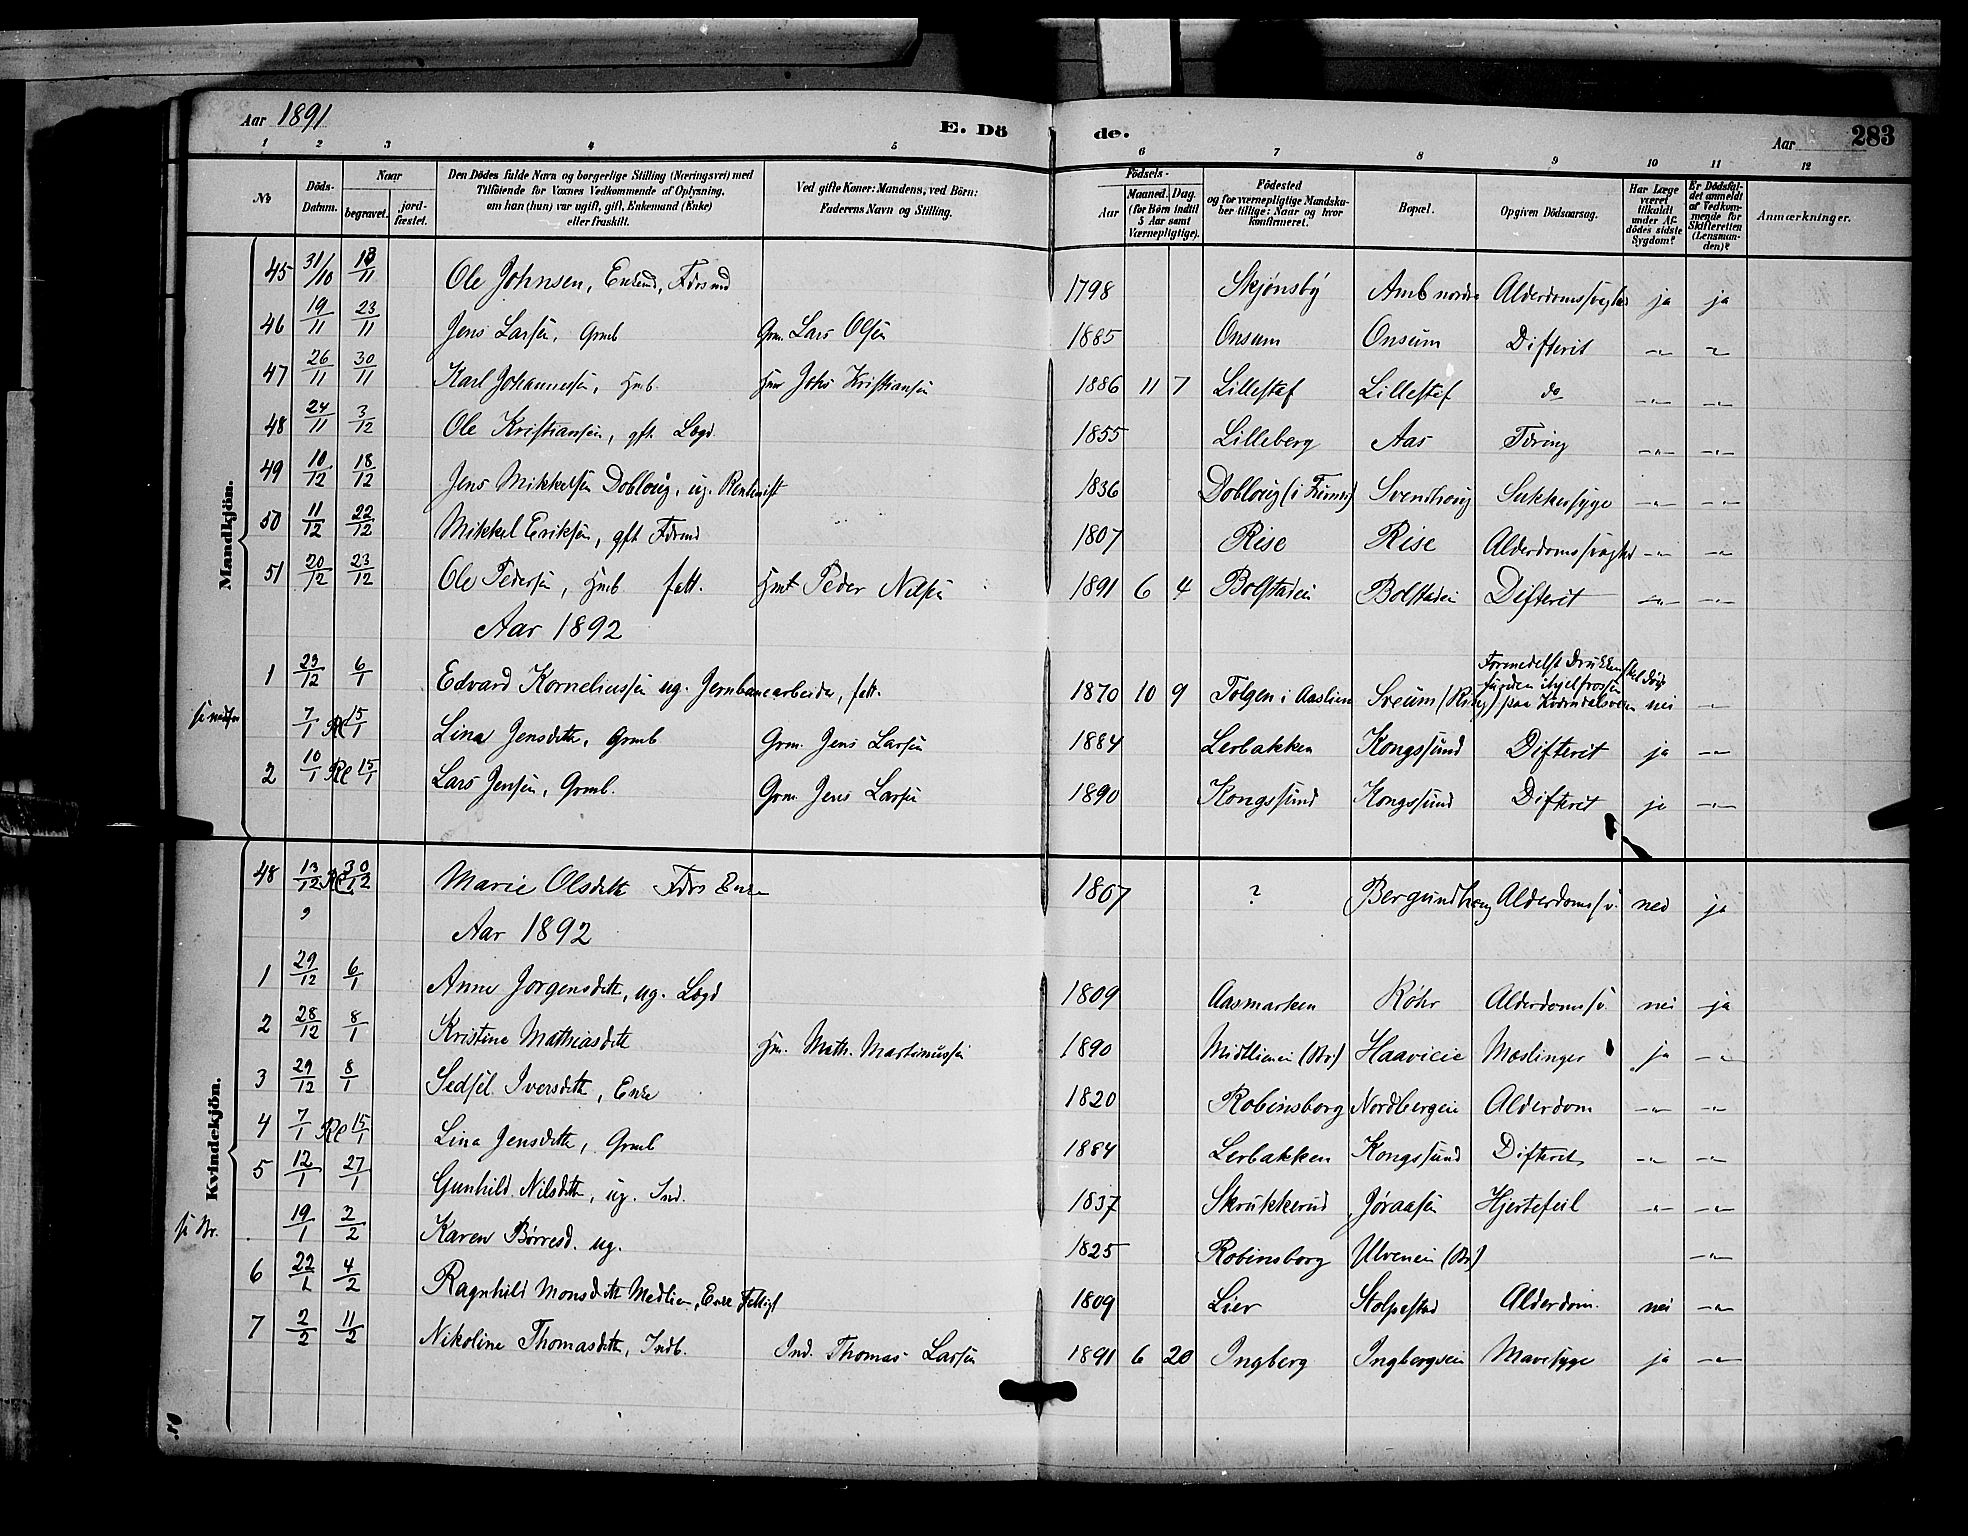 Aar 1891
E. Dö
de.
Aar
283
1 2 3 4 5 6 7 8 9 10 11 12
No
Döds-Datum.
Naar
begravet. jord-fæstet.
Den Dödes fulde Navn og borgerlige Stilling (Næringsvei) med
Tilföiende for Voxnes Vedkommende af Oplysning,
om han (hun) var ugift, gift, Enkemand (Enke)
eller fraskilt.
Ved gifte Koner: Mandens, ved Börn:
Faderens Navn og Stilling.
Födsels-
Aar
Maaned. Dag.
(for Börn indtil
5 Aar samt
Værnepligtige).
Födested
og for værnepligtige Mandska-
ber tillige: Naar og hvor
konfirmeret.
Bopæl.
Opgiven Dödsaarsag.
Har Læge
været
tilkaldt
under Af-
dödes sidste
Sygdom?
Er Dödsfal-
det anmeldt
af Vedkom-
mende for
Skifteretten
(Lensman-
den)?
Anmærkninger.
Mandkjön.
45 31/10 13/11 Ole Johnsen, 1798 Skjönsby Amb nordre Alderdomssvaghed ja ja
46 19/11 23/11 Jens Larsen, Grmb Grm. Lars Olsen 1885 Onsum Onsum Difterit -"- -"-
47 26/11 30/11 Karl Johannessen, Hmb. Hmr Johs Kristiansen 1886 11 7 Lillestef Lillestef do -"- -"-
48 24/11 3/12 Ole Kristiansen, gft. Lægd. 1855 Lilleberg Aas Tæring -"- -"-
49 10/12 18/12 Jens Mikkelsen Dobloug, ug. Rentenist 1836 Dobloug (i Furnes) Svenshoug Sukkersyge -"- -"-
50 11/12 22/12 Mikkel Eriksen, gft 1807 Rise Rise Alderdomssvaghed -"- -"-
51 20/12 23/12 Ole Pedersen, Hmb fatt. Hmt Peder Nilsen 1891 6 4 Bolstadeie Bolstadeie Difterit -"- -"-
Aar 1892
1 23/12 6/1 Edvard Korneliussen ug. Jernbanearbeider, fatt. 1870 10 9 Tolgen i Aaslien Sveum (Ring) Formedelst Drukkenskab
ihjelfrossen
paa nei -"-
7/1 Re 15/1 Lina Jensdttr, Grmb Grm. Jens Larsen 1884 Lerbakken Kongssund Difterit ja -"-
2 10/1 Re 15/1 Lars Jensen, Grmb. Grm. Jens Larsen 1890 Kongssund Kongssund Difterit ja -"-
Kvindekjön.
48 13/12 Re 30/12 Marie Olsdttr Enke 1807 ? Bergundhaug Alderdomssv. nei ja
Aar 1892
1 29/12 6/1 Anne Jörgensdttr, ug. Lægd 1809 Aasmarken Röhr Alderdomssv. nei ja
2 28/12 8/1 Kristine Mathiasdttr Hm. Math. Martinussen 1890 Midtlieneie (Br) Haavieie Mæslinger ja -"-
3 29/12 8/1 Sedsel Iversdttr, Enke 1820 Robinsborg Nordbergeie Alderdom -"- -"-
4 7/1 Re 15/1 Lina Jensdttr, Grmb 1884 Lerbakken Kongssund Difterit -"- -"-
5 12/1 27/1 Gunhild Nilsdttr, ug. Ind. 1837 Skrukkerud Jöraasen Hjertefeil -"- -"-
19/1 2/2 Karen Börresd. ug. 1825 Robinsborg Ulveneie (Br) -"-
6 22/1 4/2 Ragnhild Monsdttr Medlien, Enke Fattigl 1809 Lier Stolpestad Alderdom. nei -"-
7 2/2 11/2 Nikoline Thomasdttr, Indb. Ind. Thomas Larsen 1891 6 20 Ingberg Ingbergeie Mavesyge ja -"-